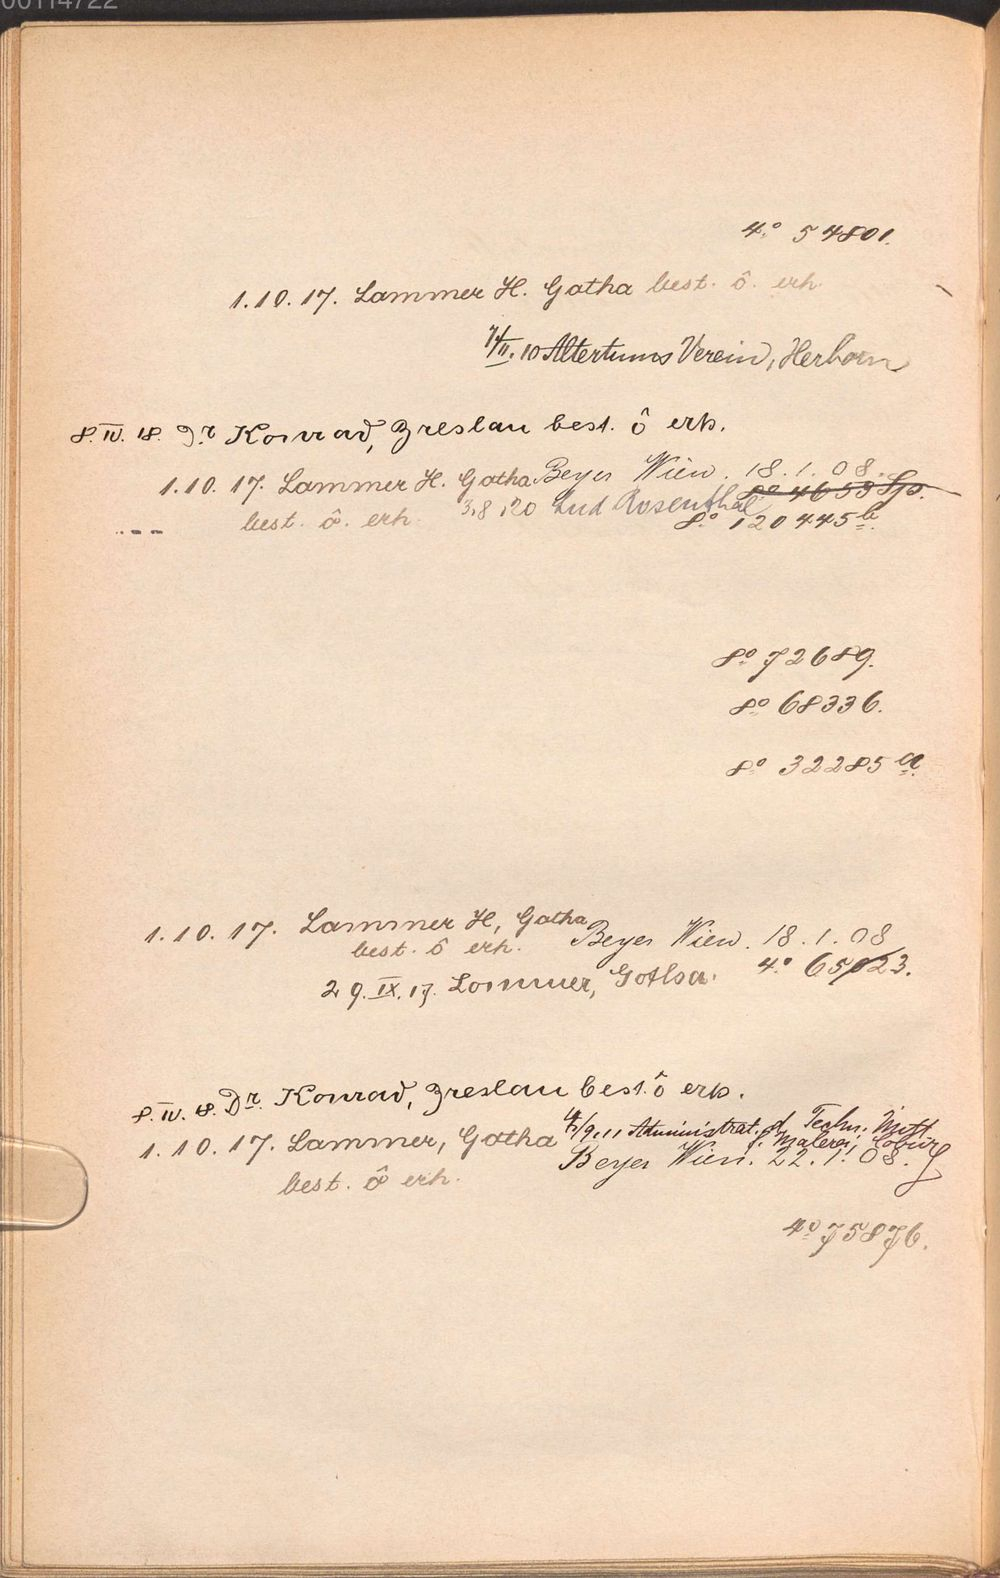 00114722
4.° 54801.
1.10.17. Lammer H. Gotha best. ô. erh.
7/II.10 Altertums Verein, Herborn
8.IV.18. Dr Konrad, Breslau best. ô erh.
1.10.17. Lammer H. Gotha Beyer Wien. 18.1.08.
8° 4653
best. ô. erh. 3.8.20 Lud Rosenthal 8.° 120445 b.
8° 72689.
8° 68336.
8° 32285 a.
1.10.17. Lammer H, Gotha
best. ô erh. Beyer Wien. 18.1.08
29.IX.17. Lommer, Gotha. 4.° 65023.
8.IV.18. Dr. Konrad, Breslau best. ô erh.
1.10.17. Lammer, Gotha 4/9.11 Administrat. d. Techn. Mitt
f. Malerei,
best. ô erh. Beyer Wien. 22.1.08.
4° 75876.